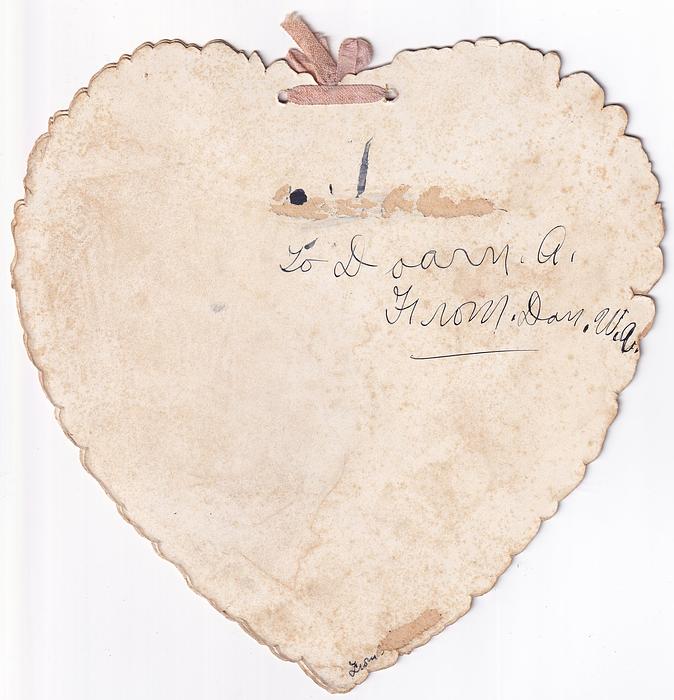 To Doarn. A.
From. Dan. W.a.
From